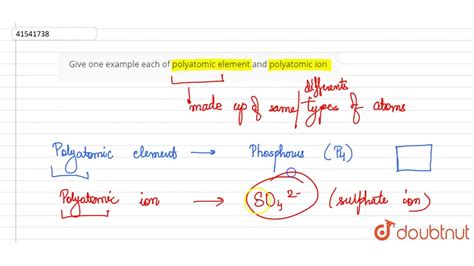 41541738
Give one example each of polyatomic element and polyatomic ion
differents
made up of same / types of atoms
Polyatomic element → Phosphorus (P₄)
Polyatomic ion → SO₄²⁻ (sulphate ion)
doubtnut